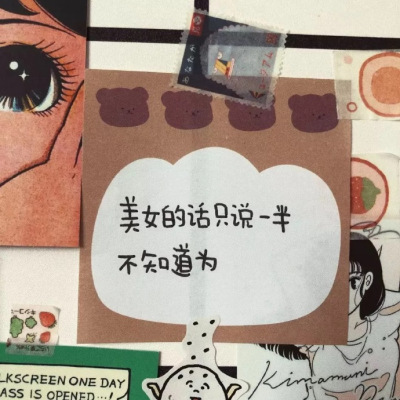 美女的话只说一半
不知道为
LKSCREEN ONE DAY
ASS IS OPENED...!
Kimamuni